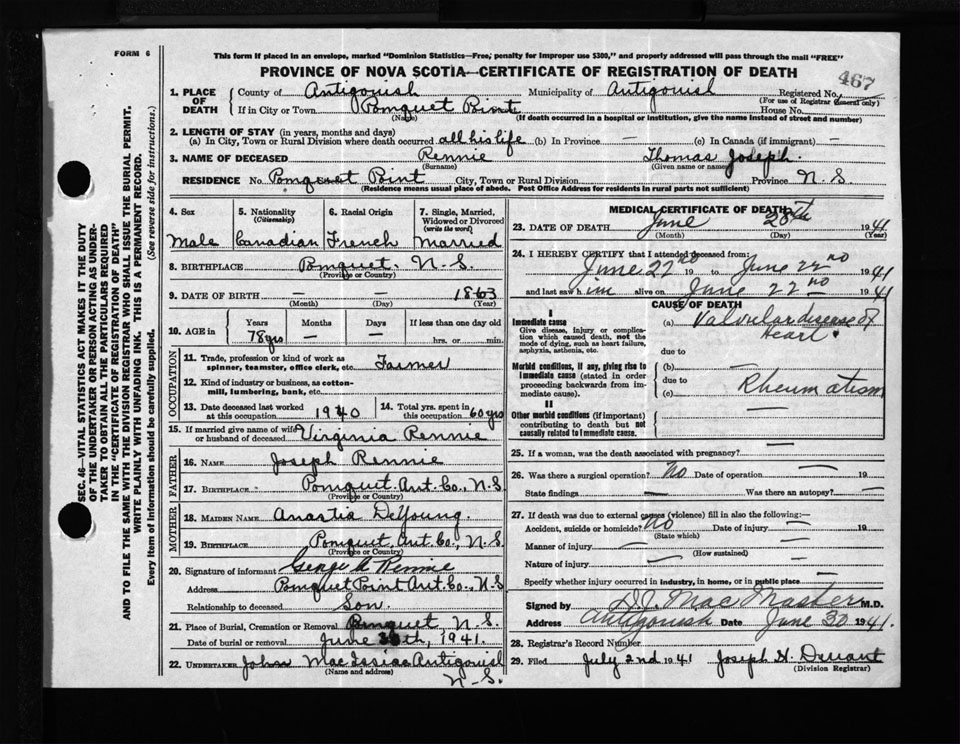 FORM 6
This form if placed in an envelope, marked "Dominion Statistics—Free, penalty for improper use $300," and properly addressed will pass through the mail "FREE"
PROVINCE OF NOVA SCOTIA—CERTIFICATE OF REGISTRATION OF DEATH
467
SEC. 46—VITAL STATISTICS ACT MAKES IT THE DUTY
OF THE UNDERTAKER OR PERSON ACTING AS UNDER-
TAKER TO OBTAIN ALL THE PARTICULARS REQUIRED
IN THE "CERTIFICATE OF REGISTRATION OF DEATH"
AND TO FILE THE SAME WITH THE DIVISION REGISTRAR WHO SHALL ISSUE THE BURIAL PERMIT.
WRITE PLAINLY WITH UNFADING INK. THIS IS A PERMANENT RECORD.
Every Item of Information should be carefully supplied. (See reverse side for instructions.)
1. PLACE OF DEATH
County of Antigonish Municipality of Antigonish Registered No.
(For use of Registrar General only)
If in City or Town Pomquet Point House No.
(Name) (If death occurred in a hospital or institution, give the name instead of street and number)
2. LENGTH OF STAY (in years, months and days)
(a) In City, Town or Rural Division where death occurred all his life (b) In Province — (c) In Canada (if immigrant) —
3. NAME OF DECEASED Rennie Thomas Joseph.
(Surname) (Given name or names)
RESIDENCE No. Pomquet Point City, Town or Rural Division Province N.S.
(Residence means usual place of abode. Post Office Address for residents in rural parts not sufficient)
4. Sex
Male
5. Nationality
(Citizenship)
Canadian
6. Racial Origin
French
7. Single, Married, Widowed or Divorced
(write the word)
Married
8. BIRTHPLACE Pomquet. N.S.
(Province or Country)
9. DATE OF BIRTH — — 1863
(Month) (Day) (Year)
10. AGE in
Years Months Days If less than one day old
78 yrs — — hrs. or min.
OCCUPATION
11. Trade, profession or kind of work as
spinner, teamster, office clerk, etc. Farmer
12. Kind of industry or business, as cotton-
mill, lumbering, bank, etc.
13. Date deceased last worked
at this occupation 1940
14. Total yrs. spent in
this occupation 60 yrs
15. If married give name of wife
or husband of deceased Virginia Rennie
FATHER
16. NAME Joseph Rennie
17. BIRTHPLACE Pomquet. Ant. Co., N.S.
(Province or Country)
MOTHER
18. MAIDEN NAME Anastia DeYoung.
19. BIRTHPLACE Pomquet, Ant. Co., N.S.
(Province or Country)
20. Signature of informant George A Rennie
Address Pomquet Point Ant. Co., N.S
Relationship to deceased Son.
21. Place of Burial, Cremation or Removal Pomquet, N.S.
Date of burial or removal June 30th, 1941.
22. UNDERTAKER John MacIssiac Antigonish
(Name and address) N-S.
MEDICAL CERTIFICATE OF DEATH
23. DATE OF DEATH June 28th 1941
(Month) (Day) (Year)
24. I HEREBY CERTIFY that I attended deceased from:
June 22nd 19 to June 22nd 1941
and last saw him alive on June 22nd 1941
CAUSE OF DEATH
I
Immediate cause
Give disease, injury or complica-
tion which caused death, not the
mode of dying, such as heart failure,
asphyxia, asthenia, etc.
(a) Valvular disease of
Heart.
due to
Morbid conditions, if any, giving rise to
immediate cause (stated in order
proceeding backwards from im-
mediate cause).
(b) —
due to
(c) Rheumatism
II
Other morbid conditions (if important)
contributing to death but not
causally related to immediate cause.
—
25. If a woman, was the death associated with pregnancy? —
26. Was there a surgical operation? No Date of operation —
State findings — Was there an autopsy? —
27. If death was due to external causes (violence) fill in also the following:
Accident, suicide or homicide? No Date of injury —
(State which)
Manner of injury — —
(How sustained)
Nature of injury —
Specify whether injury occurred in industry, in home, or in public place
Signed by D.J. MacMaster M.D.
Address Antigonish Date June 30 1941.
28. Registrar's Record Number
29. Filed July 2nd 1941 Joseph H. Durant
(Division Registrar)